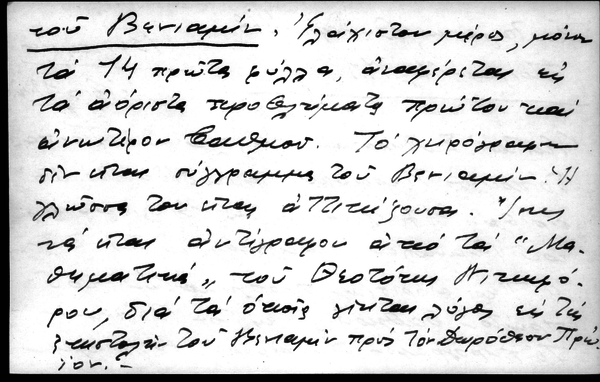 τοῦ Βενιαμίν. Ἐλάχιστον μέρος, μόνον
τά 14 πρῶτα φύλλα, ἀναφέρεται εἰς
τά ἀόριστα προβλήματα πρώτου καί
ἀνωτέρου βαθμοῦ. Τό χειρόγραφον
δέν εἶναι σύγγραμμα τοῦ Βενιαμίν. Ἡ
γλῶσσα του εἶναι ἀττικίζουσα. Ἴσως
νά εἶναι ἀντίγραφον ἀπό τά "Μα-
θηματικά" τοῦ Θεοτόκη Νικηφό-
ρου, διά τά ὁποῖα γίνεται λόγος εἰς τήν
ἐπιστολήν τοῦ Βενιαμίν πρός τόν Δωρόθεον Πρώ-
ιον.-